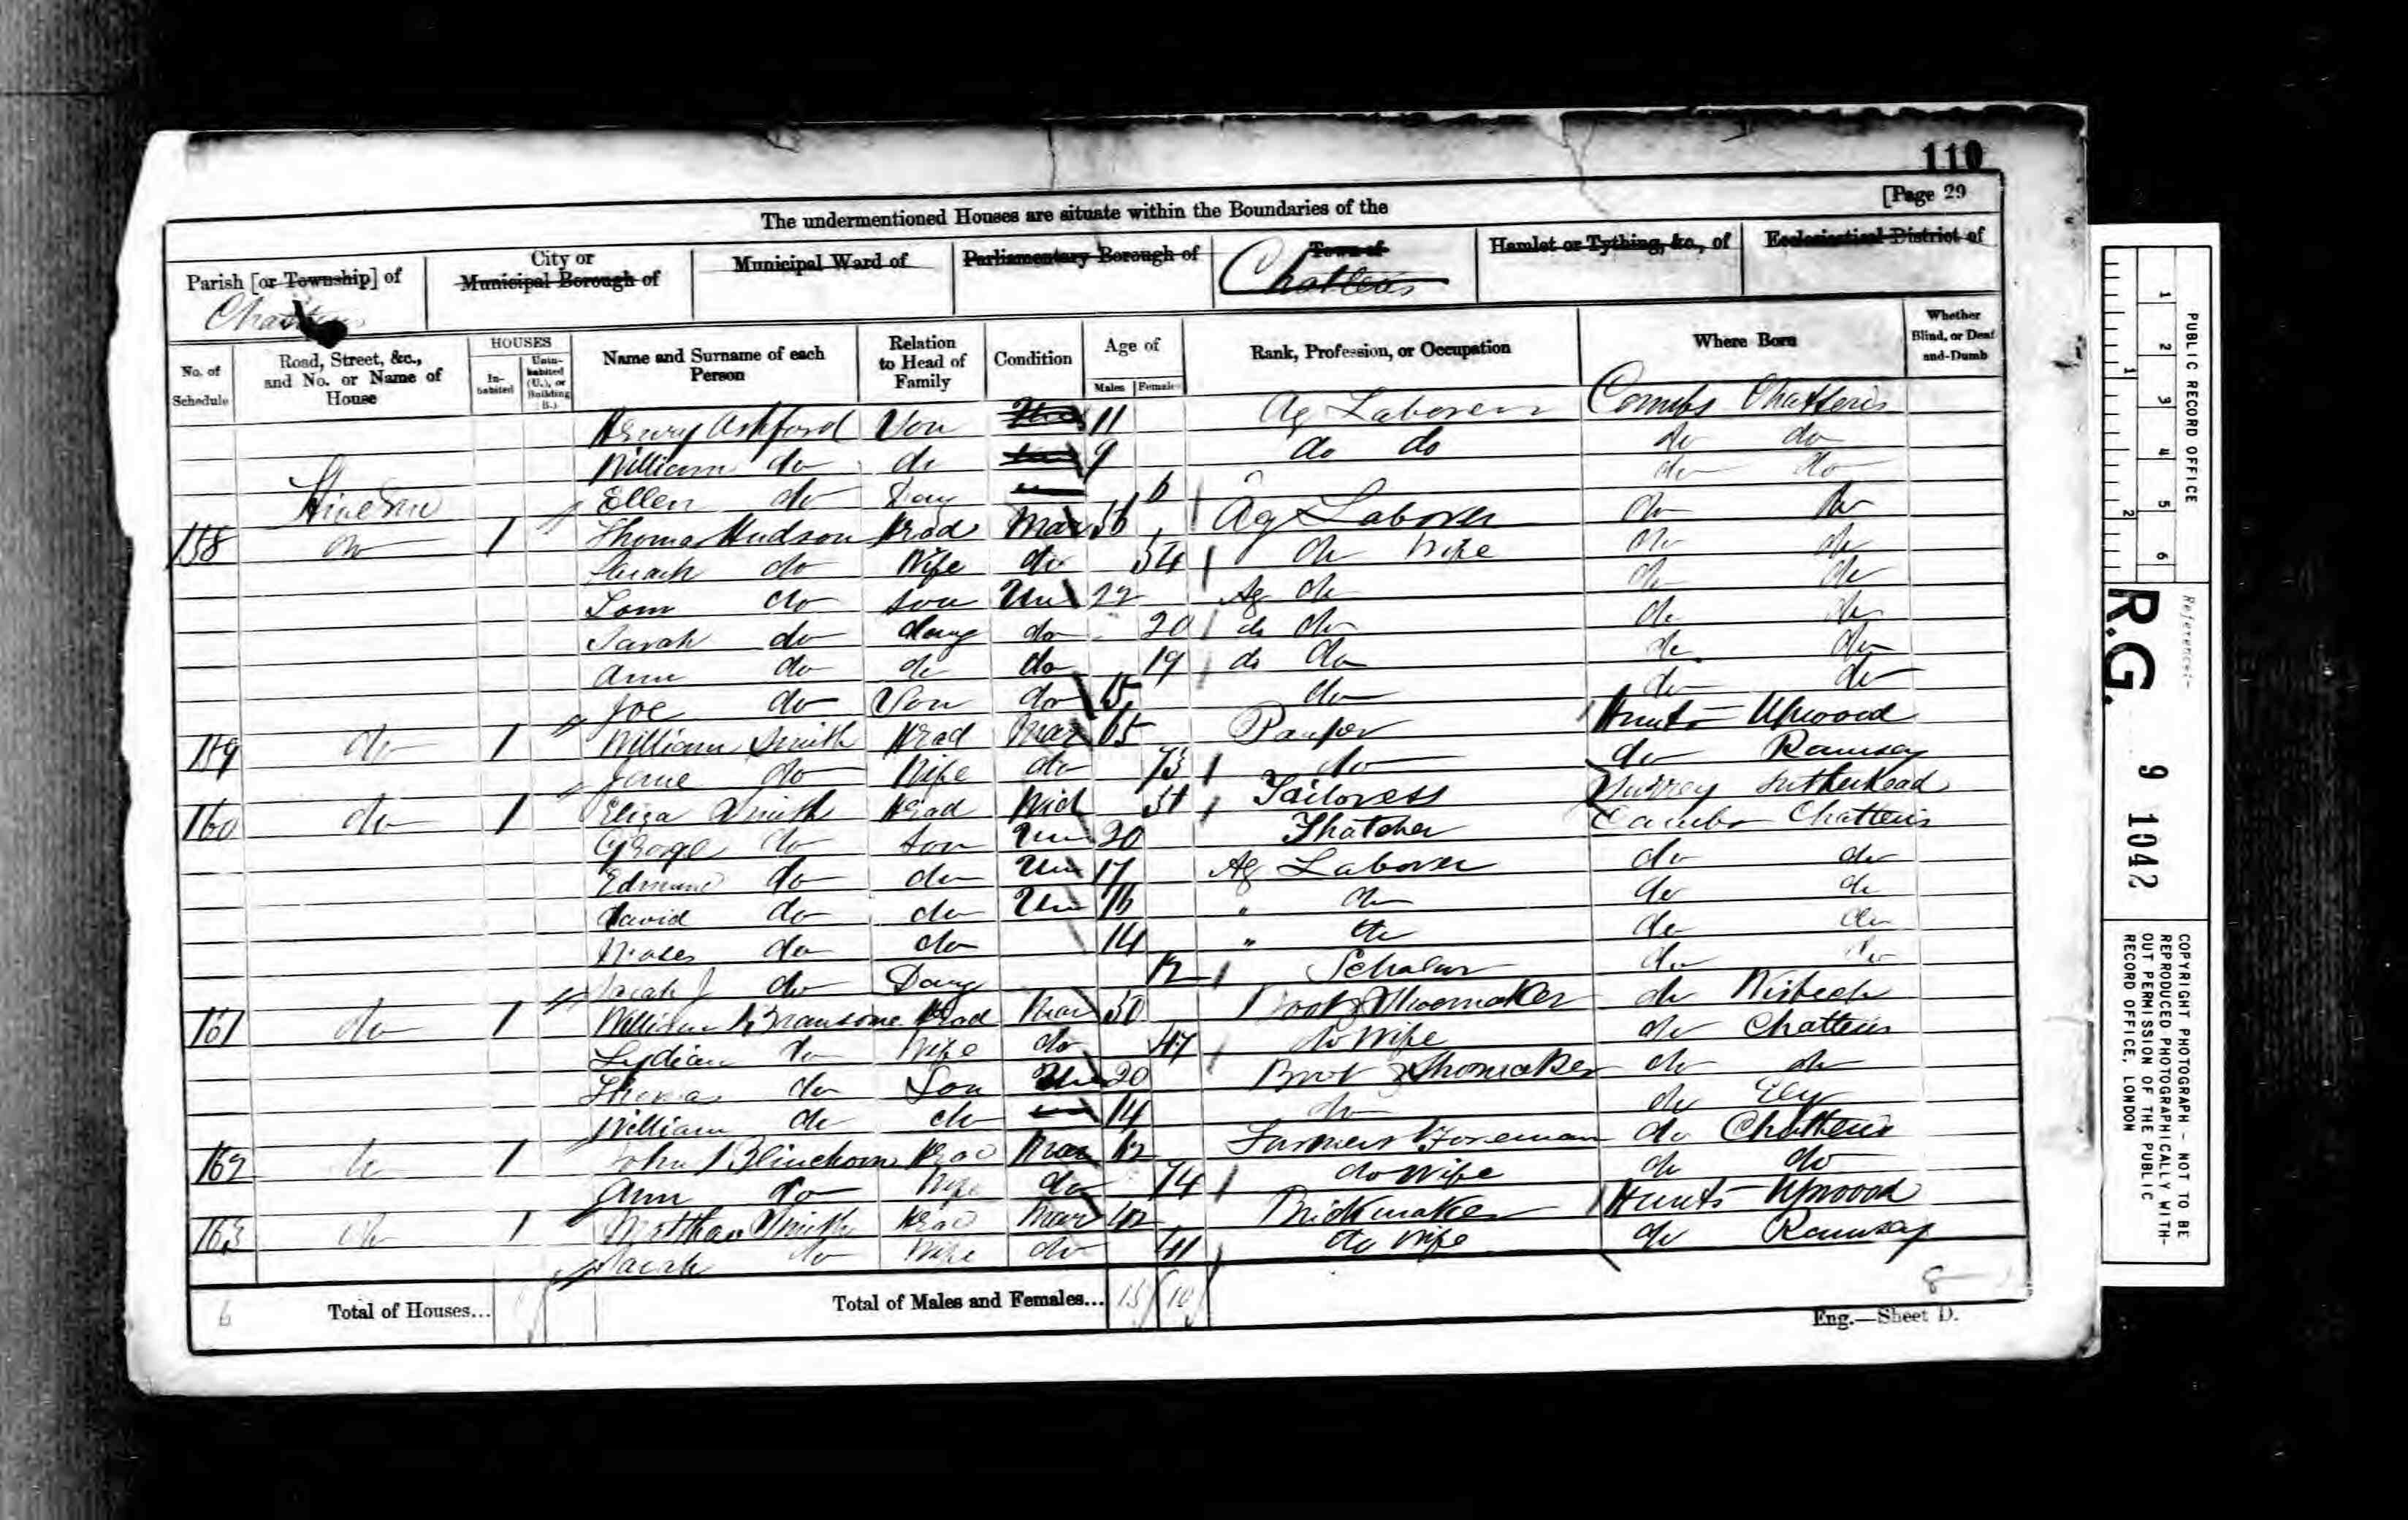 110
[Page 29
The undermentioned Houses are situate within the Boundaries of the
Parish [or Township] of
City or Municipal Borough of
Municipal Ward of
Parliamentary Borough of
Town of
Hamlet or Tything, &c., of
Ecclesiastical District of
Chatteris
Chatteris
No. of Schedule
Road, Street, &c., and No. or Name of House
HOUSES
In-habited
Unin-habited (U.), or Building (B.)
Name and Surname of each Person
Relation to Head of Family
Condition
Age of
Males
Females
Rank, Profession, or Occupation
Where Born
Whether Blind, or Deaf-and-Dumb
Henry Ashford Son 11 Ag Laborer Cambs Chatteris
William do do 9 do do do do
Ellen do Daug 6 do do
158 do 1 Thomas Hudson Head Mar 56 Ag Laborer do do
Sarah do Wife do 54 do Wife do do
Tom do Son Un 22 Ag do do do
Sarah do daug do 20 do do do do
Ann do do do 19 do do do do
Joe do Son do 15 do do do
159 do 1 William Smith Head Mar 65 Pauper Hunts Upwood
Jane do Wife do 73 do do Ramsey
160 do 1 Eliza Smith Head Wid 51 Tailoress Surrey
George do Son Un 20 Thatcher Cambs Chatteris
Edmund do do Un 17 Ag Laborer do do
David do do Un 16 " do do do
do do 14 " do do do
Sarah J do Daug 12 Scholar do do
161 do 1 William Head Mar 50 Boot & Shoemaker do Wisbech
Lydia do Wife do 47 do Wife do Chatteris
Thomas do Son Un 20 Boot & Shomaker do do
William do do 14 do do Ely
162 do 1 John Head Mar 62 Farmers Foreman do Chatteris
Ann do Wife do 74 do Wife do do
163 do 1 Matthew Smith Head Mar 42 Brickmaker Hunts Upwood
Sarah do Wife do 41 do Wife do Ramsey
6 Total of Houses...
Total of Males and Females... 15 10
8
Eng.—Sheet D.
PUBLIC RECORD OFFICE
1 2 3 4 5 6
1 2
Reference:-
R.G. 9 1042
COPYRIGHT PHOTOGRAPH - NOT TO BE
REPRODUCED PHOTOGRAPHICALLY WITH-
OUT PERMISSION OF THE PUBLIC
RECORD OFFICE, LONDON